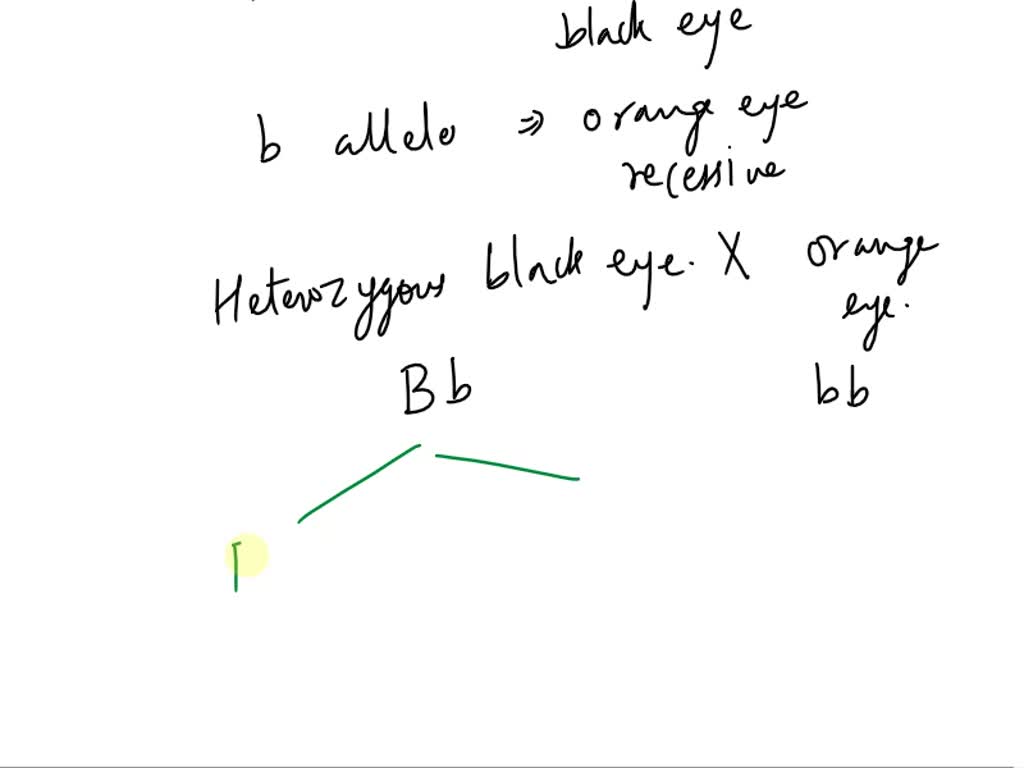 black eye
b allele ⇒ orange eye
recessive
Heterozygous black eye. X orange
eye.
Bb bb